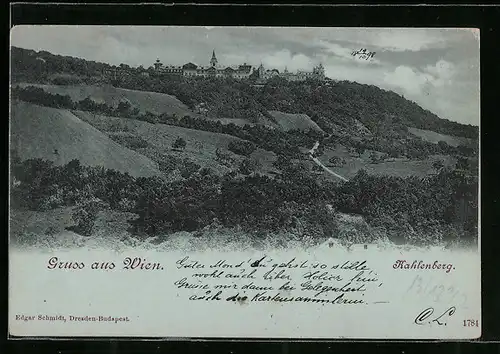 Gruss aus Wien.
Kahlenberg.
Guter Mond du gehst so stille
wohl auch über
Grüsse mir dann bei Gelegenheit
auch die Kartensammlerin
C. L.
Edgar Schmidt, Dresden-Budapest.
1784